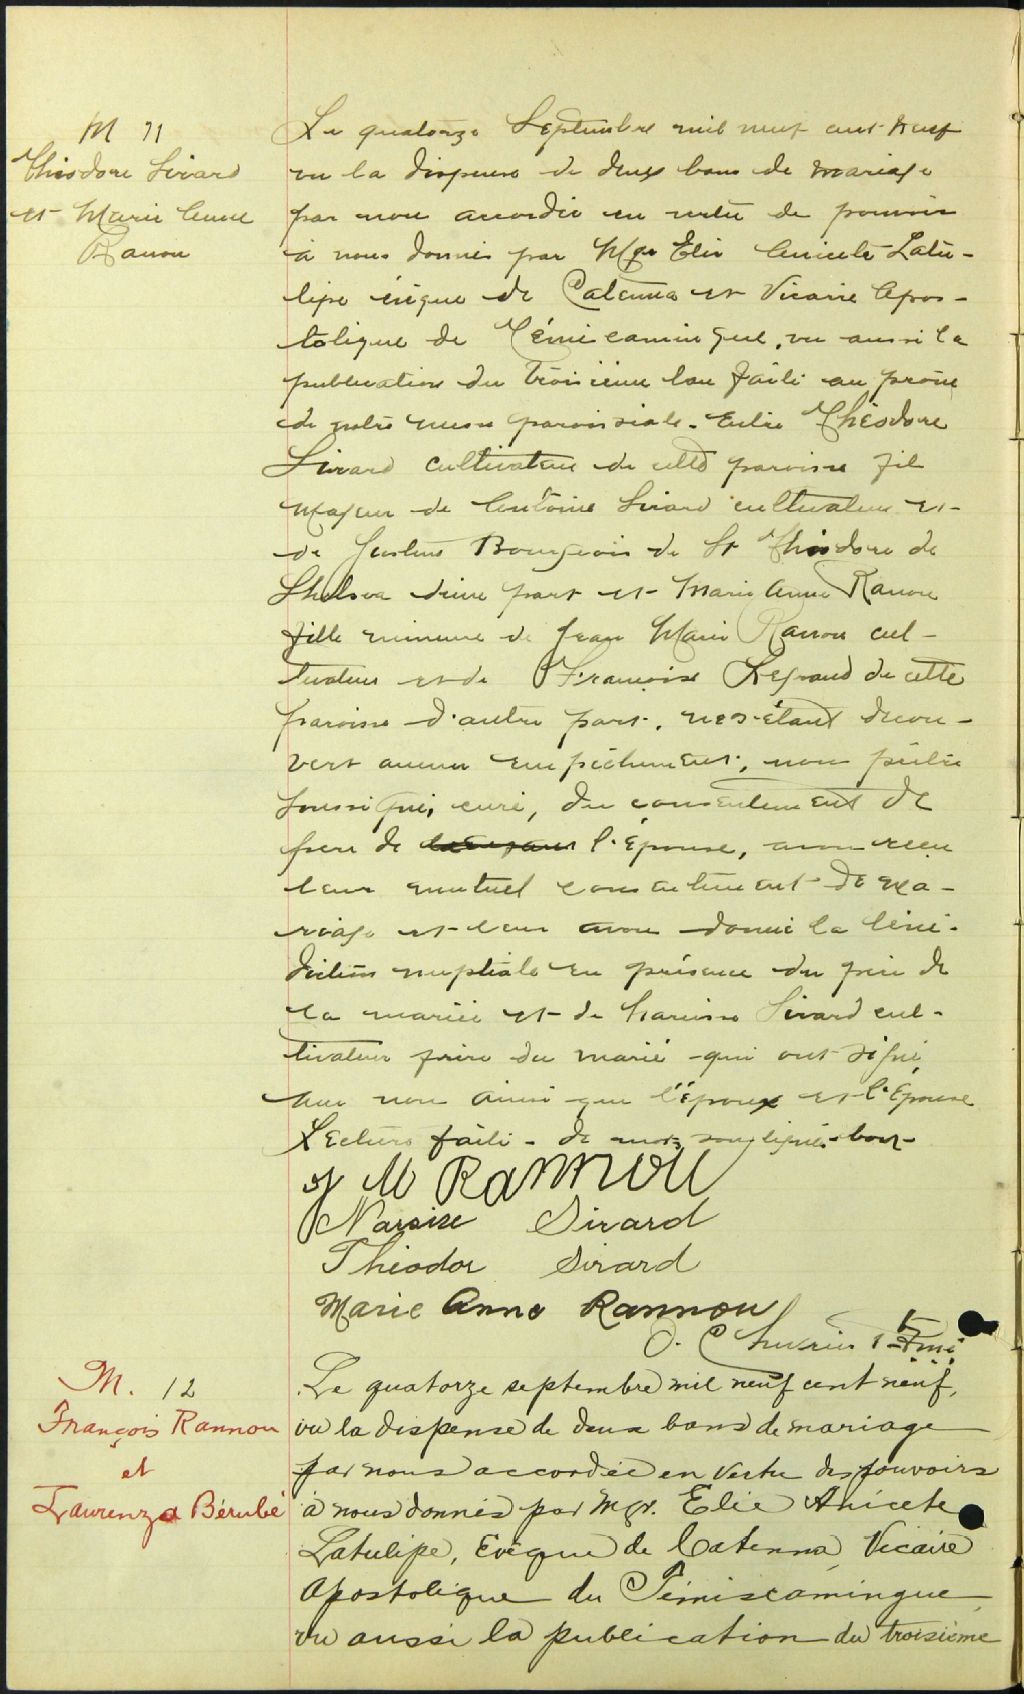 M 11
Théodore Sirard
et Marie Anne
Ranou
Le quatorze Septembre mil neuf cent neuf
vu la dispense de deux bans de mariage
par nous accordée en vertu de pouvoirs
à nous donnés par Mgr Elie Anicete Latu-
lipe évêque de Catenna et Vicaire Apos-
tolique de Témiscamingue, vu aussi la
publication du troisième ban faite au prône
de notre messe paroissiale. Entre Théodore
Sirard cultivateur de cette paroisse fils
majeur de Antoine Sirard cultivateur et
de Justine Bourgeois de St Théodore de
Chelsea d'une part et Marie Anne Ranou
fille mineure de Jean Marie Ranou cul-
tivateur et de Françoise Legrand de cette
paroisse d'autre part, ne s'étant décou-
vert aucun empêchement, nous prêtre
soussigné, curé, du consentement de
père de l'épouse, avons reçu
leur mutuel consentement de ma-
riage et leur avons donné la béné-
diction nuptiale en présence du père de
la mariée et de Narcisse Sirard cul-
tivateur frère du marié qui ont signé
avec nous ainsi que l'époux et l'épouse
Lecture faite - de mots soulignés bon
J M RANNOU
Narsise Sirard
Théodor Sirard
Marie Anne Rannou
O. Chevrier ptre
M. 12
François Rannou
et
Laurenza Bérubé
Le quatorze septembre mil neuf cent neuf,
vu la dispense de deux bans de mariage
par nous accordée en vertu des pouvoirs
à nous donnés par Mgr. Elie Anicete
Latulipe, Evêque de Catenna, Vicaire
Apostolique du Témiscamingue,
vu aussi la publication du troisième